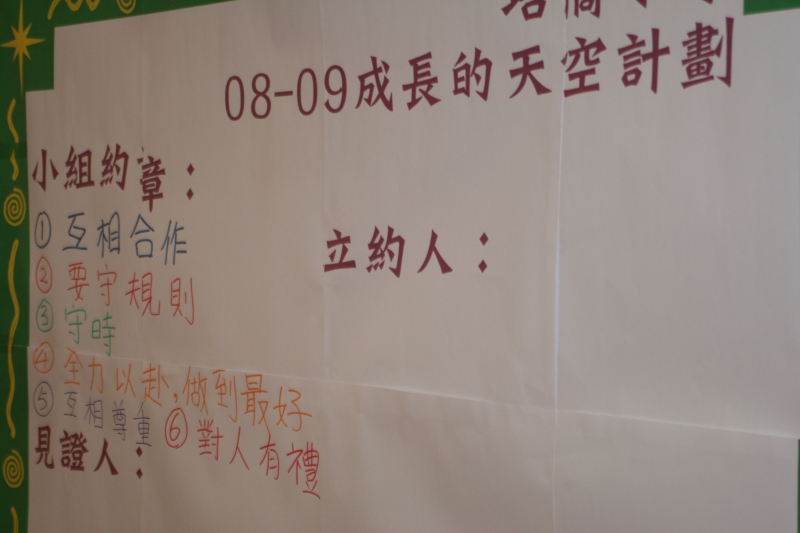 08-09成長的天空計劃
小組約章：
立約人：
①互相合作
②要守規則
③守時
④全力以赴,做到最好
⑤互相尊重
⑥對人有禮
見證人：